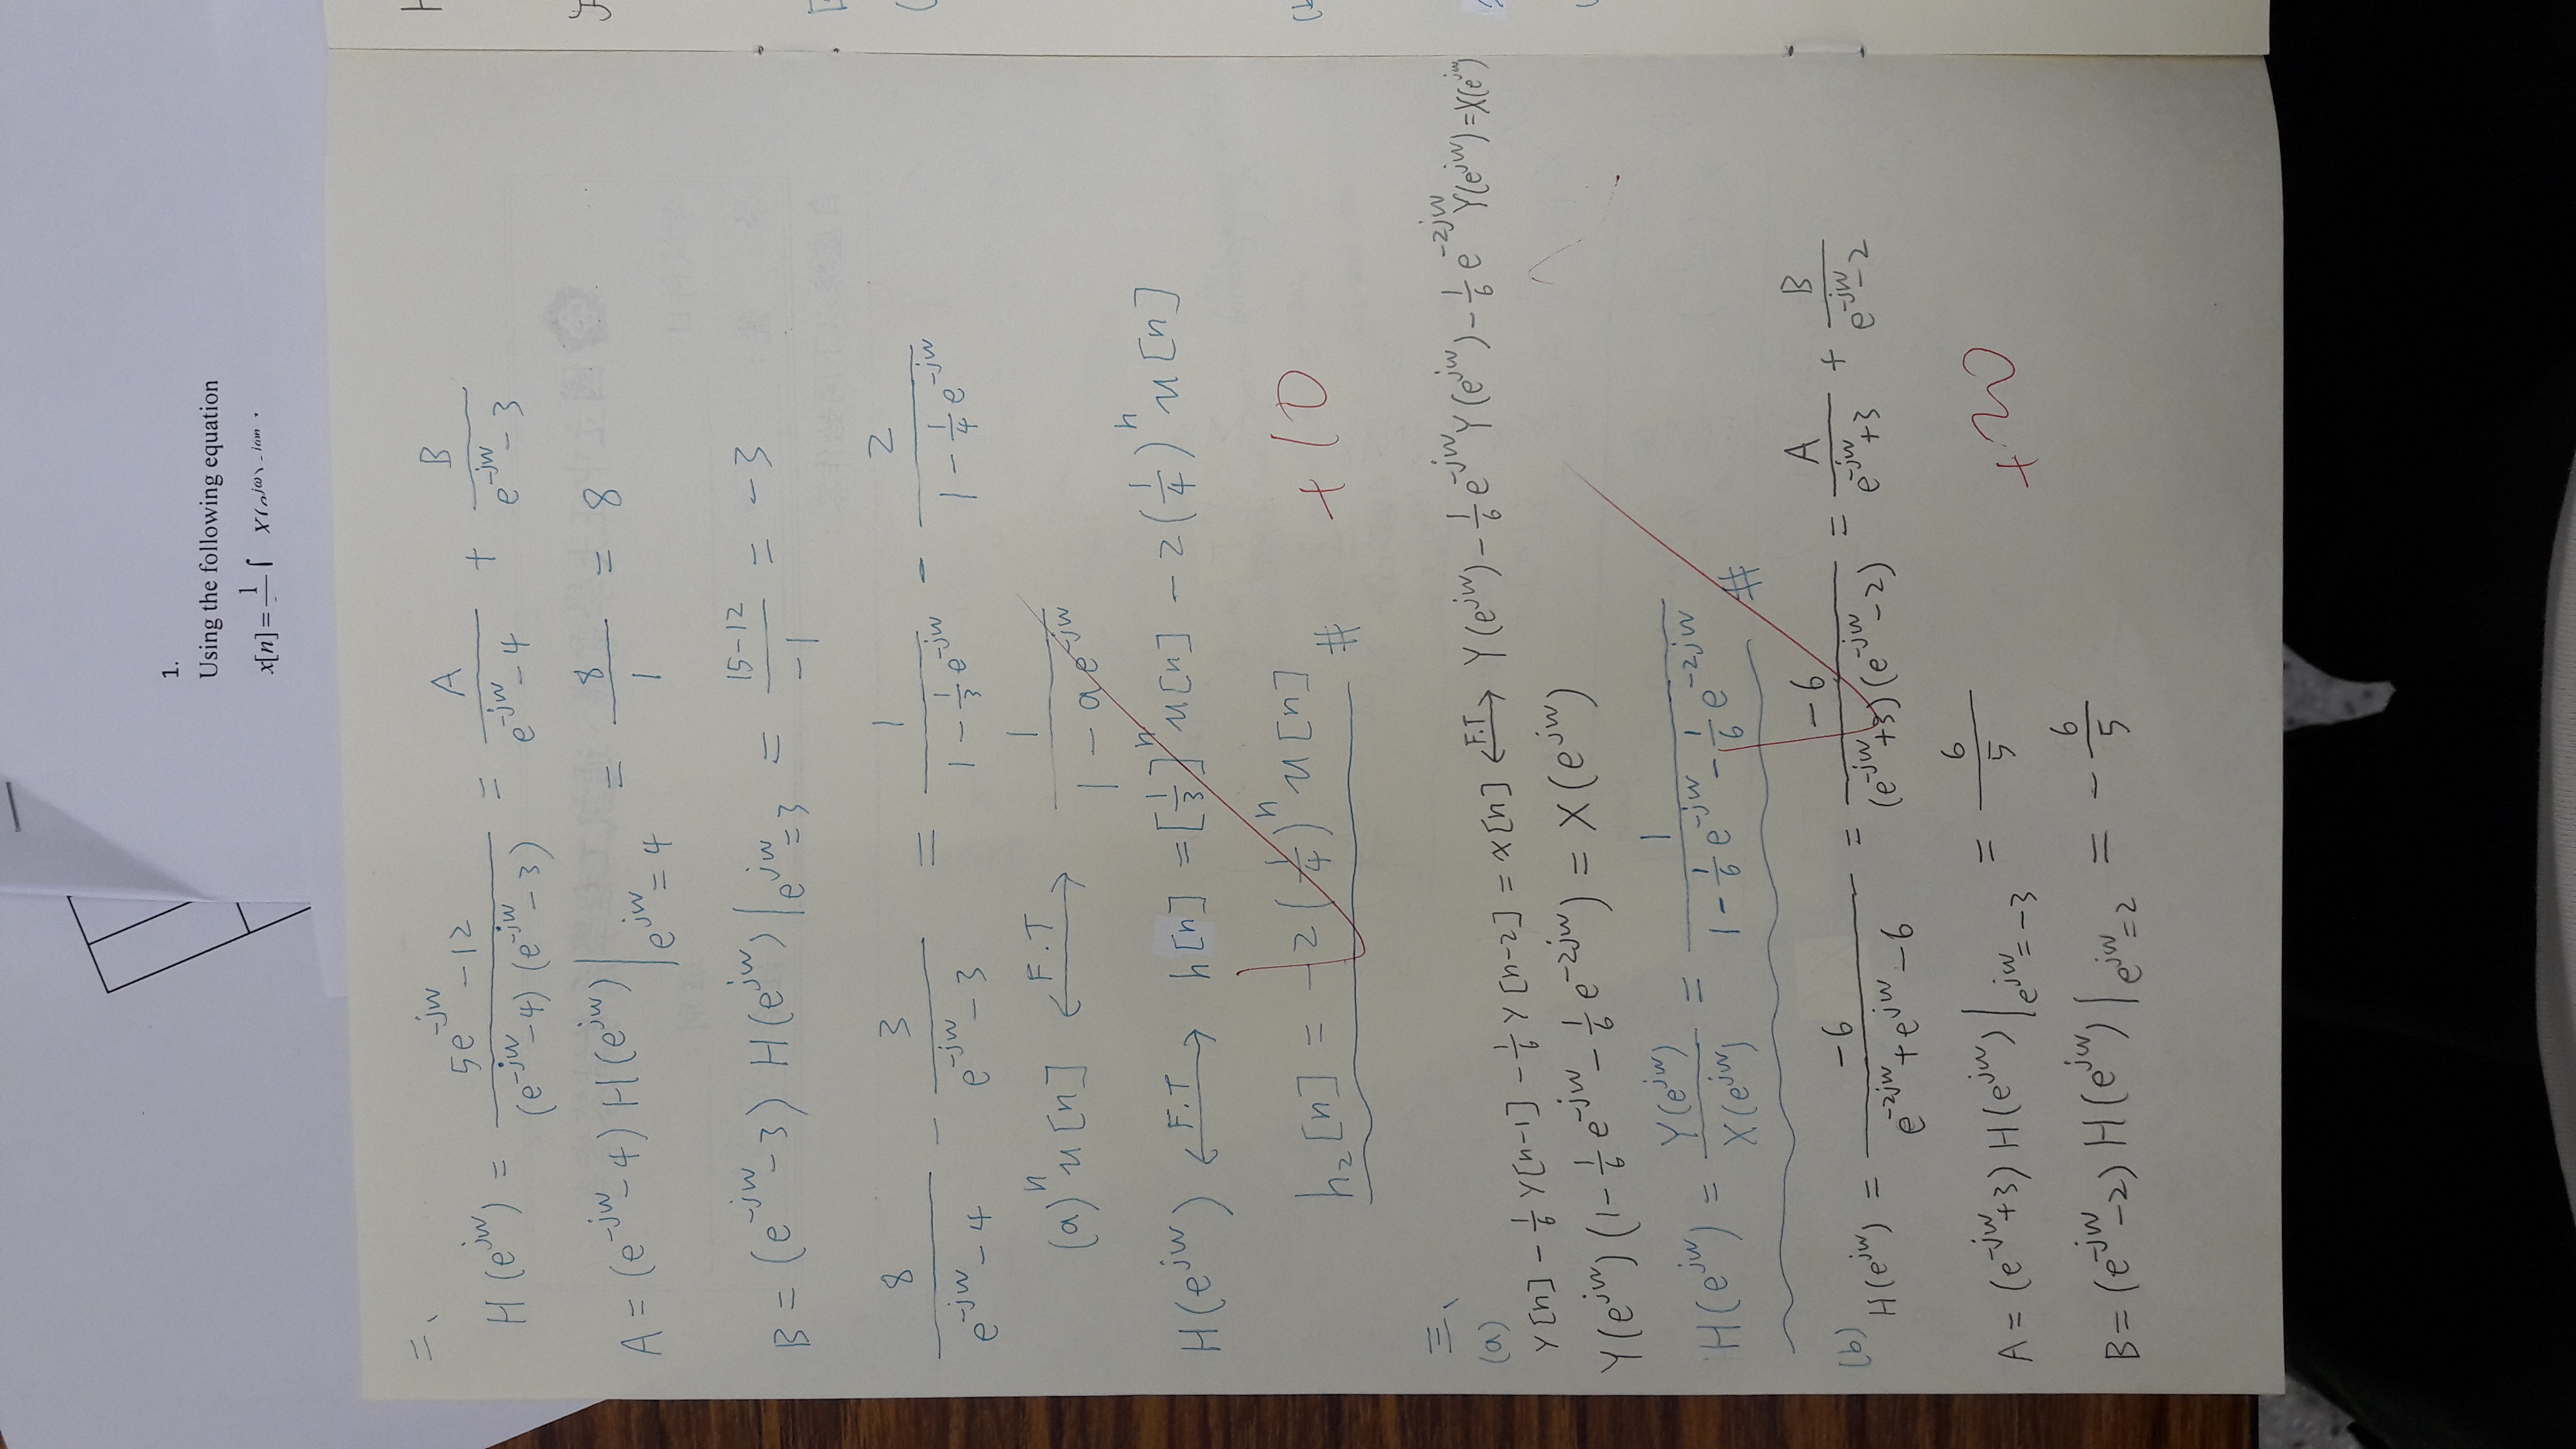 1.
Using the following equation
x[n] = 1 ∫ X(e^{jω})
二、
H(e^{jw}) = \frac{5e^{-jw} - 12}{(e^{-jw} - 4)(e^{-jw} - 3)} = \frac{A}{e^{-jw} - 4} + \frac{B}{e^{-jw} - 3}
A = (e^{-jw} - 4) H(e^{jw}) |_{e^{jw} = 4} = \frac{8}{1} = 8
B = (e^{-jw} - 3) H(e^{jw}) |_{e^{jw} = 3} = \frac{15 - 12}{-1} = -3
\frac{8}{e^{-jw} - 4} - \frac{3}{e^{-jw} - 3} = \frac{1}{1 - \frac{1}{3}e^{-jw}} - \frac{2}{1 - \frac{1}{4}e^{-jw}}
(a)^n u[n] \xleftrightarrow{F.T} \frac{1}{1 - ae^{-jw}}
H(e^{jw}) \xleftrightarrow{F.T} h[n] = [\frac{1}{3}]^n u[n] - 2(\frac{1}{4})^n u[n]
h_2[n] = -2(\frac{1}{4})^n u[n] # +10
三、
(a)
Y[n] - \frac{1}{6} Y[n-1] - \frac{1}{6} Y[n-2] = x[n] \xleftrightarrow{F.T} Y(e^{jw}) - \frac{1}{6}e^{-jw} Y(e^{jw}) - \frac{1}{6}e^{-2jw} Y(e^{jw}) = X(e^{jw})
Y(e^{jw}) (1 - \frac{1}{6}e^{-jw} - \frac{1}{6}e^{-2jw}) = X(e^{jw})
H(e^{jw}) = \frac{Y(e^{jw})}{X(e^{jw})} = \frac{1}{1 - \frac{1}{6}e^{-jw} - \frac{1}{6}e^{-2jw}} #
(b) H(e^{jw}) = \frac{-6}{e^{-2jw} + e^{jw} - 6} = \frac{-6}{(e^{-jw} + 3)(e^{-jw} - 2)} = \frac{A}{e^{-jw} + 3} + \frac{B}{e^{-jw} - 2}
A = (e^{-jw} + 3) H(e^{jw}) |_{e^{jw} = -3} = \frac{6}{5} +20
B = (e^{-jw} - 2) H(e^{jw}) |_{e^{jw} = 2} = -\frac{6}{5}